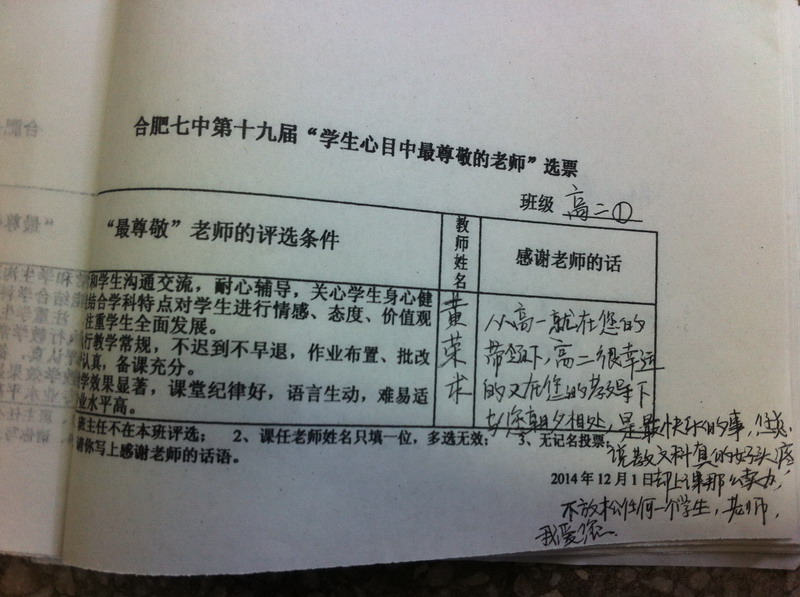 合肥七中第十九届“学生心目中最尊敬的老师”选票
班级 高二①
“最尊敬”老师的评选条件
教师姓名
感谢老师的话
和学生沟通交流，耐心辅导，关心学生身心健
结合学科特点对学生进行情感、态度、价值观
注重学生全面发展。
行教学常规，不迟到不早退，作业布置、批改
认真，备课充分。
学效果显著，课堂纪律好，语言生动，难易适
业水平高。
黄荣
从高一就在您的
带领下，高二很幸运
的又在您的教导下
与您朝夕相处，是最快乐的事，您总
说教文科真的好头疼
却上课那么卖力，
不放松任何一个学生，老师，
我爱您
班主任不在本班评选； 2、课任老师姓名只填一位，多选无效； 3、无记名投票，
请你写上感谢老师的话语。
2014年12月1日